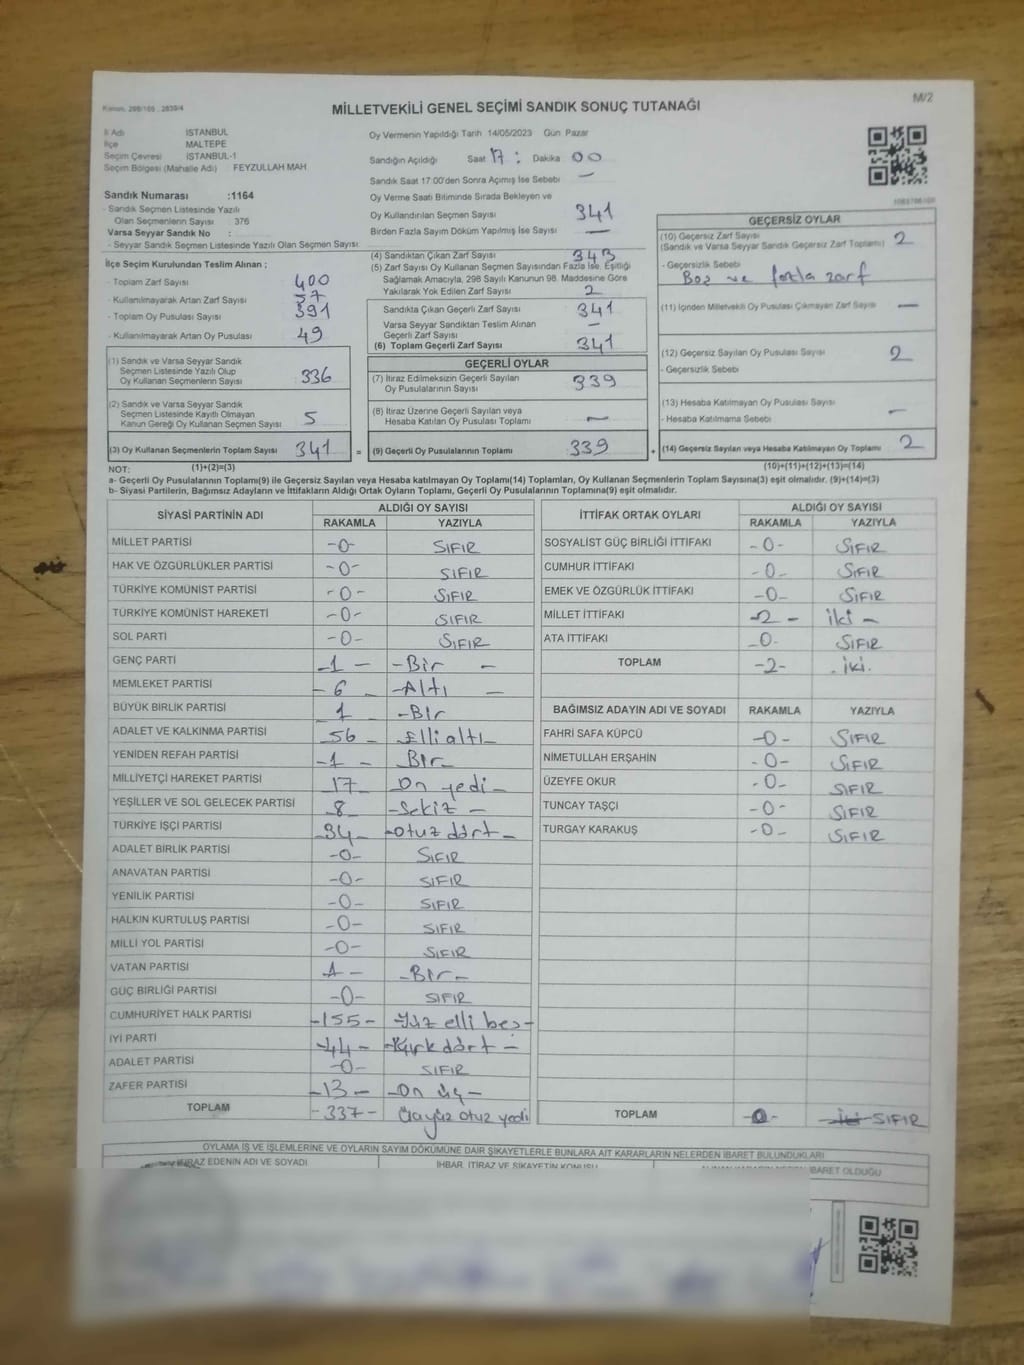 Kanun, 298/105 , 2839/4
MİLLETVEKİLİ GENEL SEÇİMİ SANDIK SONUÇ TUTANAĞI
M/2
İl Adı İSTANBUL
İlçe MALTEPE
Seçim Çevresi İSTANBUL-1
Seçim Bölgesi (Mahalle Adı) FEYZULLAH MAH
Sandık Numarası :1164
- Sandık Seçmen Listesinde Yazılı
Olan Seçmenlerin Sayısı 376
Varsa Seyyar Sandık No :
- Seyyar Sandık Seçmen Listesinde Yazılı Olan Seçmen Sayısı:
İlçe Seçim Kurulundan Teslim Alınan ;
- Toplam Zarf Sayısı 400
- Kullanılmayarak Artan Zarf Sayısı 57
- Toplam Oy Pusulası Sayısı 391
- Kullanılmayarak Artan Oy Pusulası 49
(1) Sandık ve Varsa Seyyar Sandık
Seçmen Listesinde Yazılı Olup
Oy Kullanan Seçmenlerin Sayısı 336
(2) Sandık ve Varsa Seyyar Sandık
Seçmen Listesinde Kayıtlı Olmayan
Kanun Gereği Oy Kullanan Seçmen Sayısı 5
(3) Oy Kullanan Seçmenlerin Toplam Sayısı 341 =
Oy Vermenin Yapıldığı Tarih 14/05/2023 Gün Pazar
Sandığın Açıldığı Saat 17 : Dakika 00
Sandık Saat 17:00'den Sonra Açılmış İse Sebebi —
Oy Verme Saati Bitiminde Sırada Bekleyen ve
Oy Kullandırılan Seçmen Sayısı 341
Birden Fazla Sayım Döküm Yapılmış İse Sayısı —
(4) Sandıktan Çıkan Zarf Sayısı 343
(5) Zarf Sayısı Oy Kullanan Seçmen Sayısından Fazla İse, Eşitliği
Sağlamak Amacıyla, 298 Sayılı Kanunun 98. Maddesine Göre
Yakılarak Yok Edilen Zarf Sayısı 2
Sandıkta Çıkan Geçerli Zarf Sayısı 341
Varsa Seyyar Sandıktan Teslim Alınan
Geçerli Zarf Sayısı —
(6) Toplam Geçerli Zarf Sayısı 341
GEÇERLİ OYLAR
(7) İtiraz Edilmeksizin Geçerli Sayılan
Oy Pusulalarının Sayısı 339
(8) İtiraz Üzerine Geçerli Sayılan veya
Hesaba Katılan Oy Pusulası Toplamı —
(9) Geçerli Oy Pusulalarının Toplamı 339 +
GEÇERSİZ OYLAR
(10) Geçersiz Zarf Sayısı
(Sandık ve Varsa Seyyar Sandık Geçersiz Zarf Toplamı) 2
- Geçersizlik Sebebi
Boş ve fazla zarf
(11) İçinden Milletvekili Oy Pusulası Çıkmayan Zarf Sayısı —
(12) Geçersiz Sayılan Oy Pusulası Sayısı 2
- Geçersizlik Sebebi
(13) Hesaba Katılmayan Oy Pusulası Sayısı —
- Hesaba Katılmama Sebebi
(14) Geçersiz Sayılan veya Hesaba Katılmayan Oy Toplamı 2
NOT: (1)+(2)=(3) (10)+(11)+(12)+(13)=(14)
a- Geçerli Oy Pusulalarının Toplamı(9) ile Geçersiz Sayılan veya Hesaba katılmayan Oy Toplamı(14) Toplamları, Oy Kullanan Seçmenlerin Toplam Sayısına(3) eşit olmalıdır. (9)+(14)=(3)
b- Siyasi Partilerin, Bağımsız Adayların ve İttifakların Aldığı Ortak Oyların Toplamı, Geçerli Oy Pusulalarının Toplamına(9) eşit olmalıdır.
SİYASİ PARTİNİN ADI ALDIĞI OY SAYISI
RAKAMLA YAZIYLA
MİLLET PARTİSİ -0- SIFIR
HAK VE ÖZGÜRLÜKLER PARTİSİ -0- SIFIR
TÜRKİYE KOMÜNİST PARTİSİ -0- SIFIR
TÜRKİYE KOMÜNİST HAREKETİ -0- SIFIR
SOL PARTİ -0- SIFIR
GENÇ PARTİ -1- -Bir-
MEMLEKET PARTİSİ -6- -Altı-
BÜYÜK BİRLİK PARTİSİ 1 -Bir
ADALET VE KALKINMA PARTİSİ -56- Elli altı-
YENİDEN REFAH PARTİSİ -1- Bir-
MİLLİYETÇİ HAREKET PARTİSİ -17- On yedi-
YEŞİLLER VE SOL GELECEK PARTİSİ -8- -Sekiz-
TÜRKİYE İŞÇİ PARTİSİ -34- -Otuz dört-
ADALET BİRLİK PARTİSİ -0- SIFIR
ANAVATAN PARTİSİ -0- SIFIR
YENİLİK PARTİSİ -0- SIFIR
HALKIN KURTULUŞ PARTİSİ -0- SIFIR
MİLLİ YOL PARTİSİ -0- SIFIR
VATAN PARTİSİ -1- -Bir-
GÜÇ BİRLİĞİ PARTİSİ -0- SIFIR
CUMHURİYET HALK PARTİSİ -155- -Yüz elli beş-
İYİ PARTİ -44- -Kırk dört-
ADALET PARTİSİ -0- SIFIR
ZAFER PARTİSİ -13- -On üç-
TOPLAM -337- Üçyüz otuz yedi
İTTİFAK ORTAK OYLARI ALDIĞI OY SAYISI
RAKAMLA YAZIYLA
SOSYALİST GÜÇ BİRLİĞİ İTTİFAKI -0- SIFIR
CUMHUR İTTİFAKI -0- SIFIR
EMEK VE ÖZGÜRLÜK İTTİFAKI -0- SIFIR
MİLLET İTTİFAKI -2- iki-
ATA İTTİFAKI -0- SIFIR
TOPLAM -2- iki.
BAĞIMSIZ ADAYIN ADI VE SOYADI RAKAMLA YAZIYLA
FAHRİ SAFA KÜPCÜ -0- SIFIR
NİMETULLAH ERŞAHİN -0- SIFIR
ÜZEYFE OKUR -0- SIFIR
TUNCAY TAŞÇI -0- SIFIR
TURGAY KARAKUŞ -0- SIFIR
TOPLAM -0- iki SIFIR
OYLAMA İŞ VE İŞLEMLERİNE VE OYLARIN SAYIM DÖKÜMÜNE DAİR ŞİKAYETLERLE BUNLARA AİT KARARLARIN NELERDEN İBARET BULUNDUKLARI
İTİRAZ EDENİN ADI VE SOYADI İHBAR, İTİRAZ VE ŞİKAYETİN KONUSU İBARET OLDUĞU